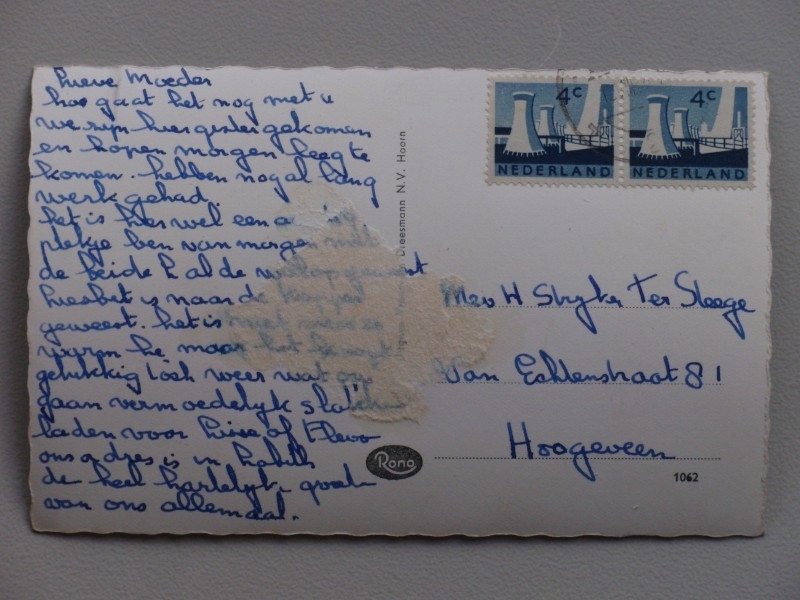 Lieve Moeder
hoe gaat het nog met u
we zijn hier gister gekomen
en hopen morgen leeg te
komen. hebben nog al lang
werk gehad.
het is hier wel een a
plekje ben van morgen met
de beide h al de
is naar de kapper
geweest. het is niet meer zo
waren he, maar het
gelukkig toch weer wat op
gaan vermoedelyk
laden voor of Elevo
ons adres is in
de heel hartelyk
van ons allemaal.
4c
NEDERLAND
4c
NEDERLAND
Dreesmann N.V. Hoorn
Mev H Stryker Ter Steege
Van Echtenstraat 81
Hoogeveen
Rono
1062